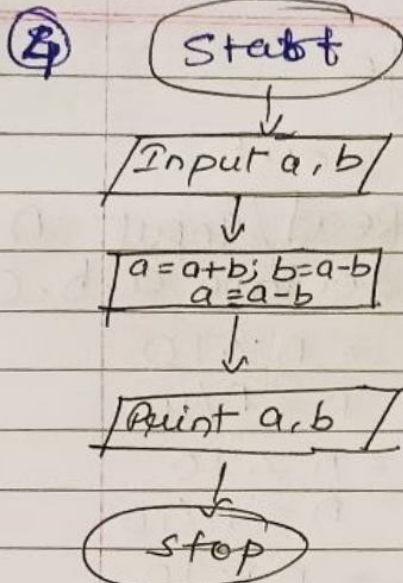 Start
Input a, b
a = a+b; b=a-b
a = a-b
Print a, b
Stop